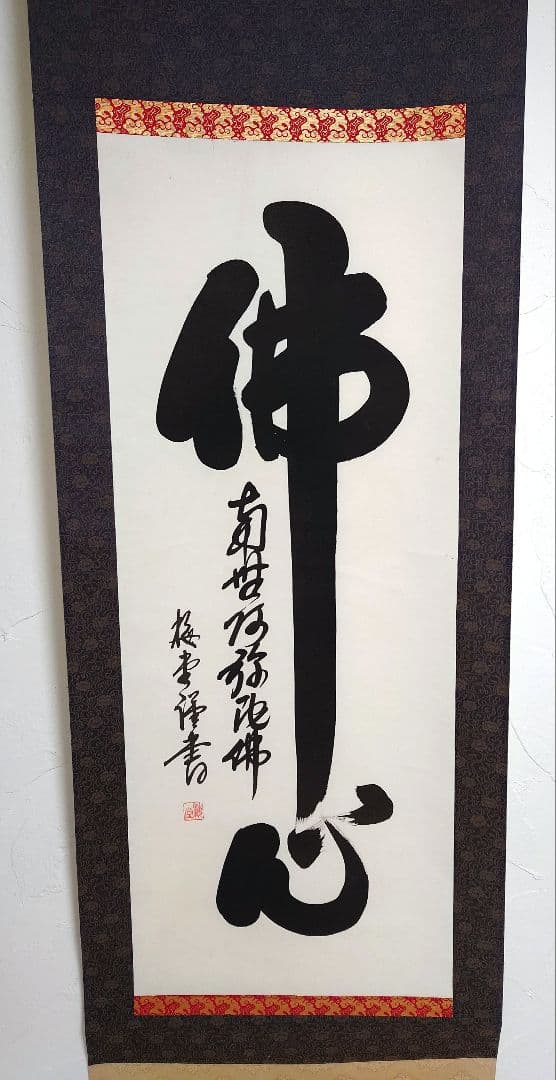 佛心
南無阿弥陀佛
梅堂謹書